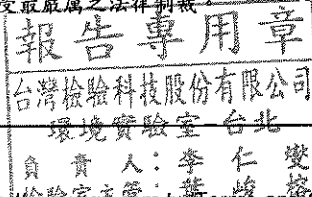 受最嚴厲之法律制裁。
報告專用章
台灣檢驗科技股份有限公司
環境實驗室-台北
負責人：李仁燮
檢驗室主管：葉峻榕